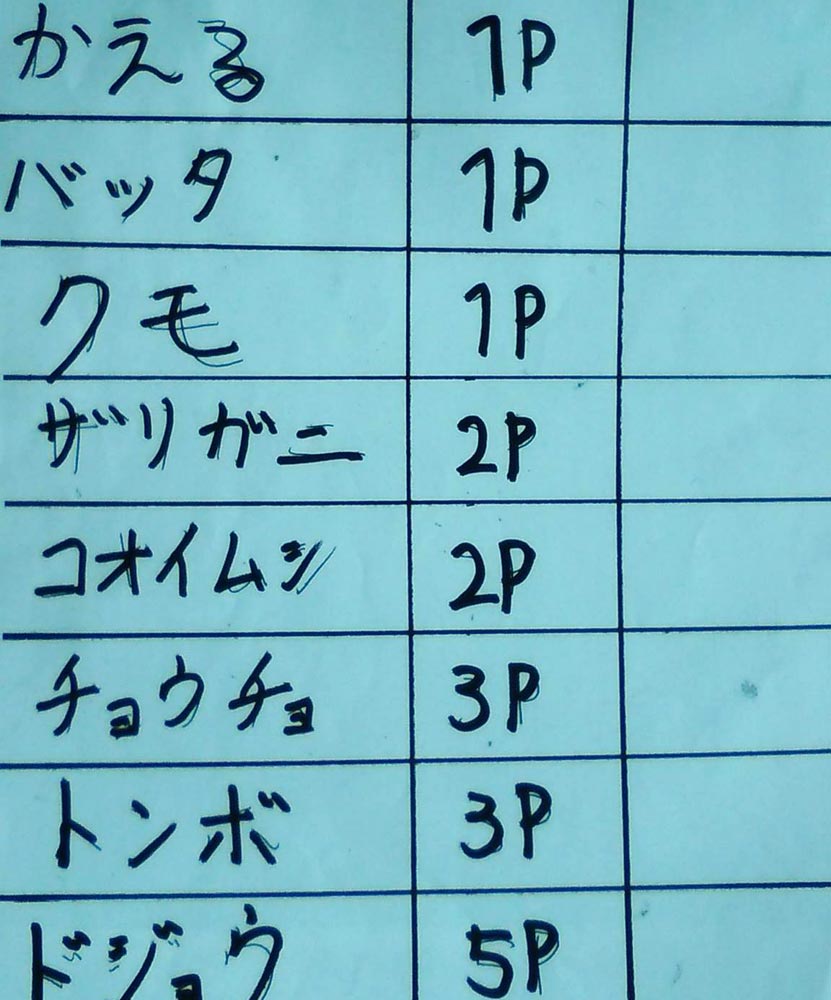 かえる 1P
バッタ 1P
クモ 1P
ザリガニ 2P
コオイムシ 2P
チョウチョ 3P
トンボ 3P
ドジョウ 5P